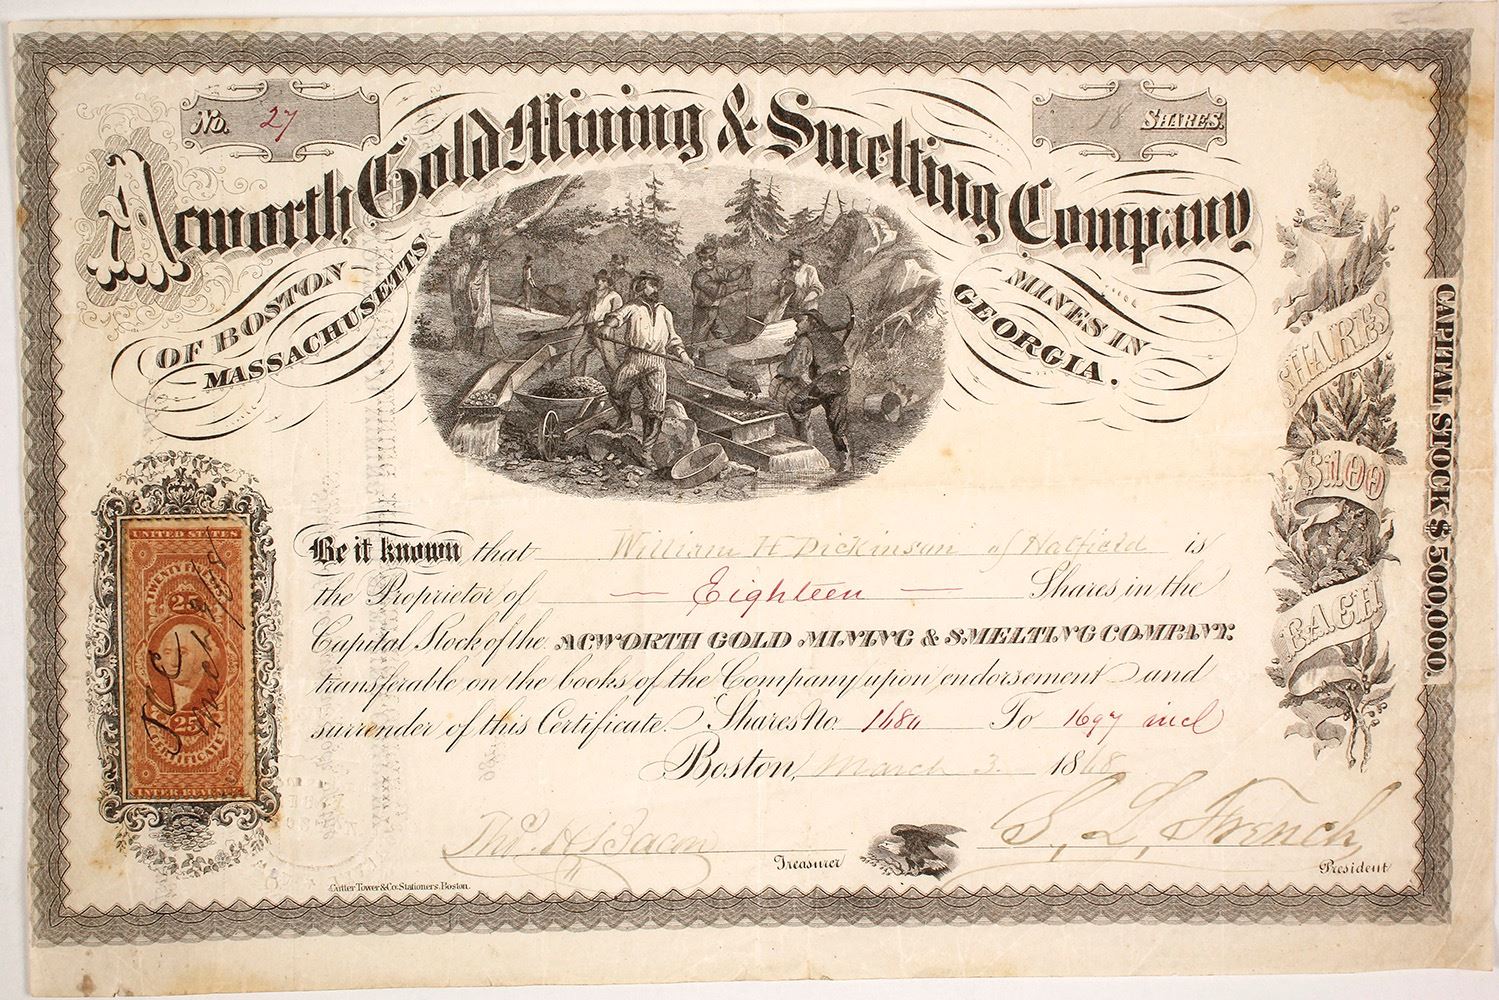 No. 27
18 SHARES.
Acworth Gold Mining & Smelting Company
OF BOSTON
MASSACHUSETTS
MINES IN
GEORGIA.
SHARES
$100
EACH
CAPITAL STOCK $500,000.
UNITED STATES
TWENTY FIVE CTS
25
25
CERTIFICATE
INTER. REVENUE
Be it known that William H Dickinson of Hatfield is
the Proprietor of — Eighteen — Shares in the
Capital Stock of the ACWORTH GOLD MINING & SMELTING COMPANY.
transferable on the books of the Company upon endorsement and
surrender of this Certificate. Shares No. 1680 To 1697 incl
Boston, March 3. 1868
Thos. H Bacon Treasurer
S. L. French, President
Cutter Tower & Co. Stationers. Boston.